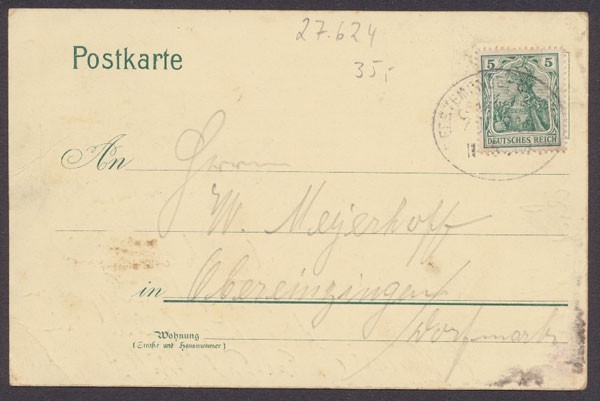 27.624
Postkarte
35,-
5 5
DEUTSCHES REICH
An Herrn
W. Meyerhoff
in Obereinzingen
Dorfmark
Wohnung
(Straße und Hausnummer)